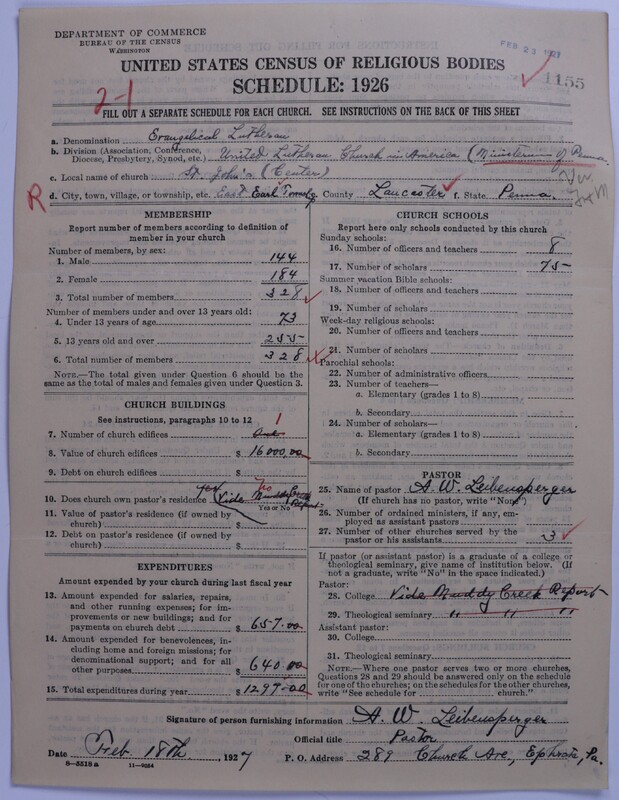 DEPARTMENT OF COMMERCE
BUREAU OF THE CENSUS
WASHINGTON
FEB 23 1927
UNITED STATES CENSUS OF RELIGIOUS BODIES
SCHEDULE: 1926
1155
2-1
FILL OUT A SEPARATE SCHEDULE FOR EACH CHURCH. SEE INSTRUCTIONS ON THE BACK OF THIS SHEET
a. Denomination Evangelical Lutheran
b. Division (Association, Conference, Diocese, Presbytery, Synod, etc.) United Lutheran Church in America (Ministerium of Penna.
c. Local name of church St. John's (Center)
R d. City, town, village, or township, etc. East Earl Township County Lancaster f. State Penna.
MEMBERSHIP
Report number of members according to definition of member in your church
Number of members, by sex:
1. Male 144
2. Female 184
3. Total number of members 328
Number of members under and over 13 years old:
4. Under 13 years of age 73
5. 13 years old and over 255
6. Total number of members 328
NOTE.—The total given under Question 6 should be the same as the total of males and females given under Question 3.
CHURCH BUILDINGS
See instructions, paragraphs 10 to 12
7. Number of church edifices One 1
8. Value of church edifices $ 16000.00
9. Debt on church edifices $
10. Does church own pastor's residence yes Vide Muddy Creek Report No
Yes or No
11. Value of pastor's residence (if owned by church) $
12. Debt on pastor's residence (if owned by church) $
EXPENDITURES
Amount expended by your church during last fiscal year
13. Amount expended for salaries, repairs, and other running expenses; for improvements or new buildings; and for payments on church debt $ 657.00
14. Amount expended for benevolences, including home and foreign missions; for denominational support; and for all other purposes $ 640.00
15. Total expenditures during year $ 1297.00
CHURCH SCHOOLS
Report here only schools conducted by this church
Sunday schools:
16. Number of officers and teachers 8
17. Number of scholars 75
Summer vacation Bible schools:
18. Number of officers and teachers
19. Number of scholars
Week-day religious schools:
20. Number of officers and teachers
21. Number of scholars
Parochial schools:
22. Number of administrative officers
23. Number of teachers—
a. Elementary (grades 1 to 8)
b. Secondary
24. Number of scholars—
a. Elementary (grades 1 to 8)
b. Secondary
PASTOR
25. Name of pastor A. W. Leibensperger
(If church has no pastor, write "None")
26. Number of ordained ministers, if any, employed as assistant pastors
27. Number of other churches served by the pastor or his assistants 3
If pastor (or assistant pastor) is a graduate of a college or theological seminary, give name of institution below. (If not a graduate, write "No" in the space indicated.)
Pastor:
28. College Vide Muddy Creek Report
29. Theological seminary " " "
Assistant pastor:
30. College
31. Theological seminary
NOTE.—Where one pastor serves two or more churches, Questions 28 and 29 should be answered only on the schedule for one of the churches; on the schedules for the other churches, write "See schedule for ______ church."
Signature of person furnishing information A. W. Leibensperger
Official title Pastor
Date Feb. 18th, 1927 P. O. Address 289 Church Ave, Ephrata, Pa.
8—5318 a 11—9054